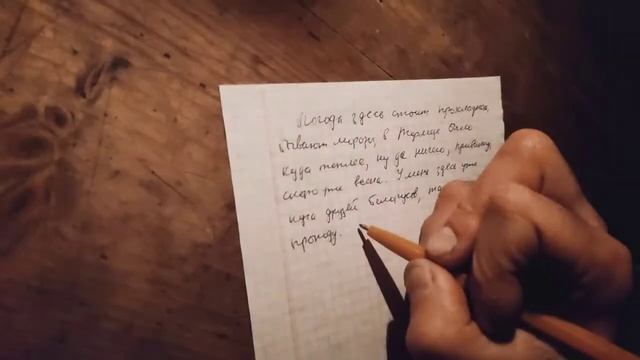 Погода здесь стоит прохладная,
бывают морозы, в Турции было
куда теплее, ну да ничего, привыкну,
скоро уже весна. У меня здесь уже
куча друзей
прохожу.